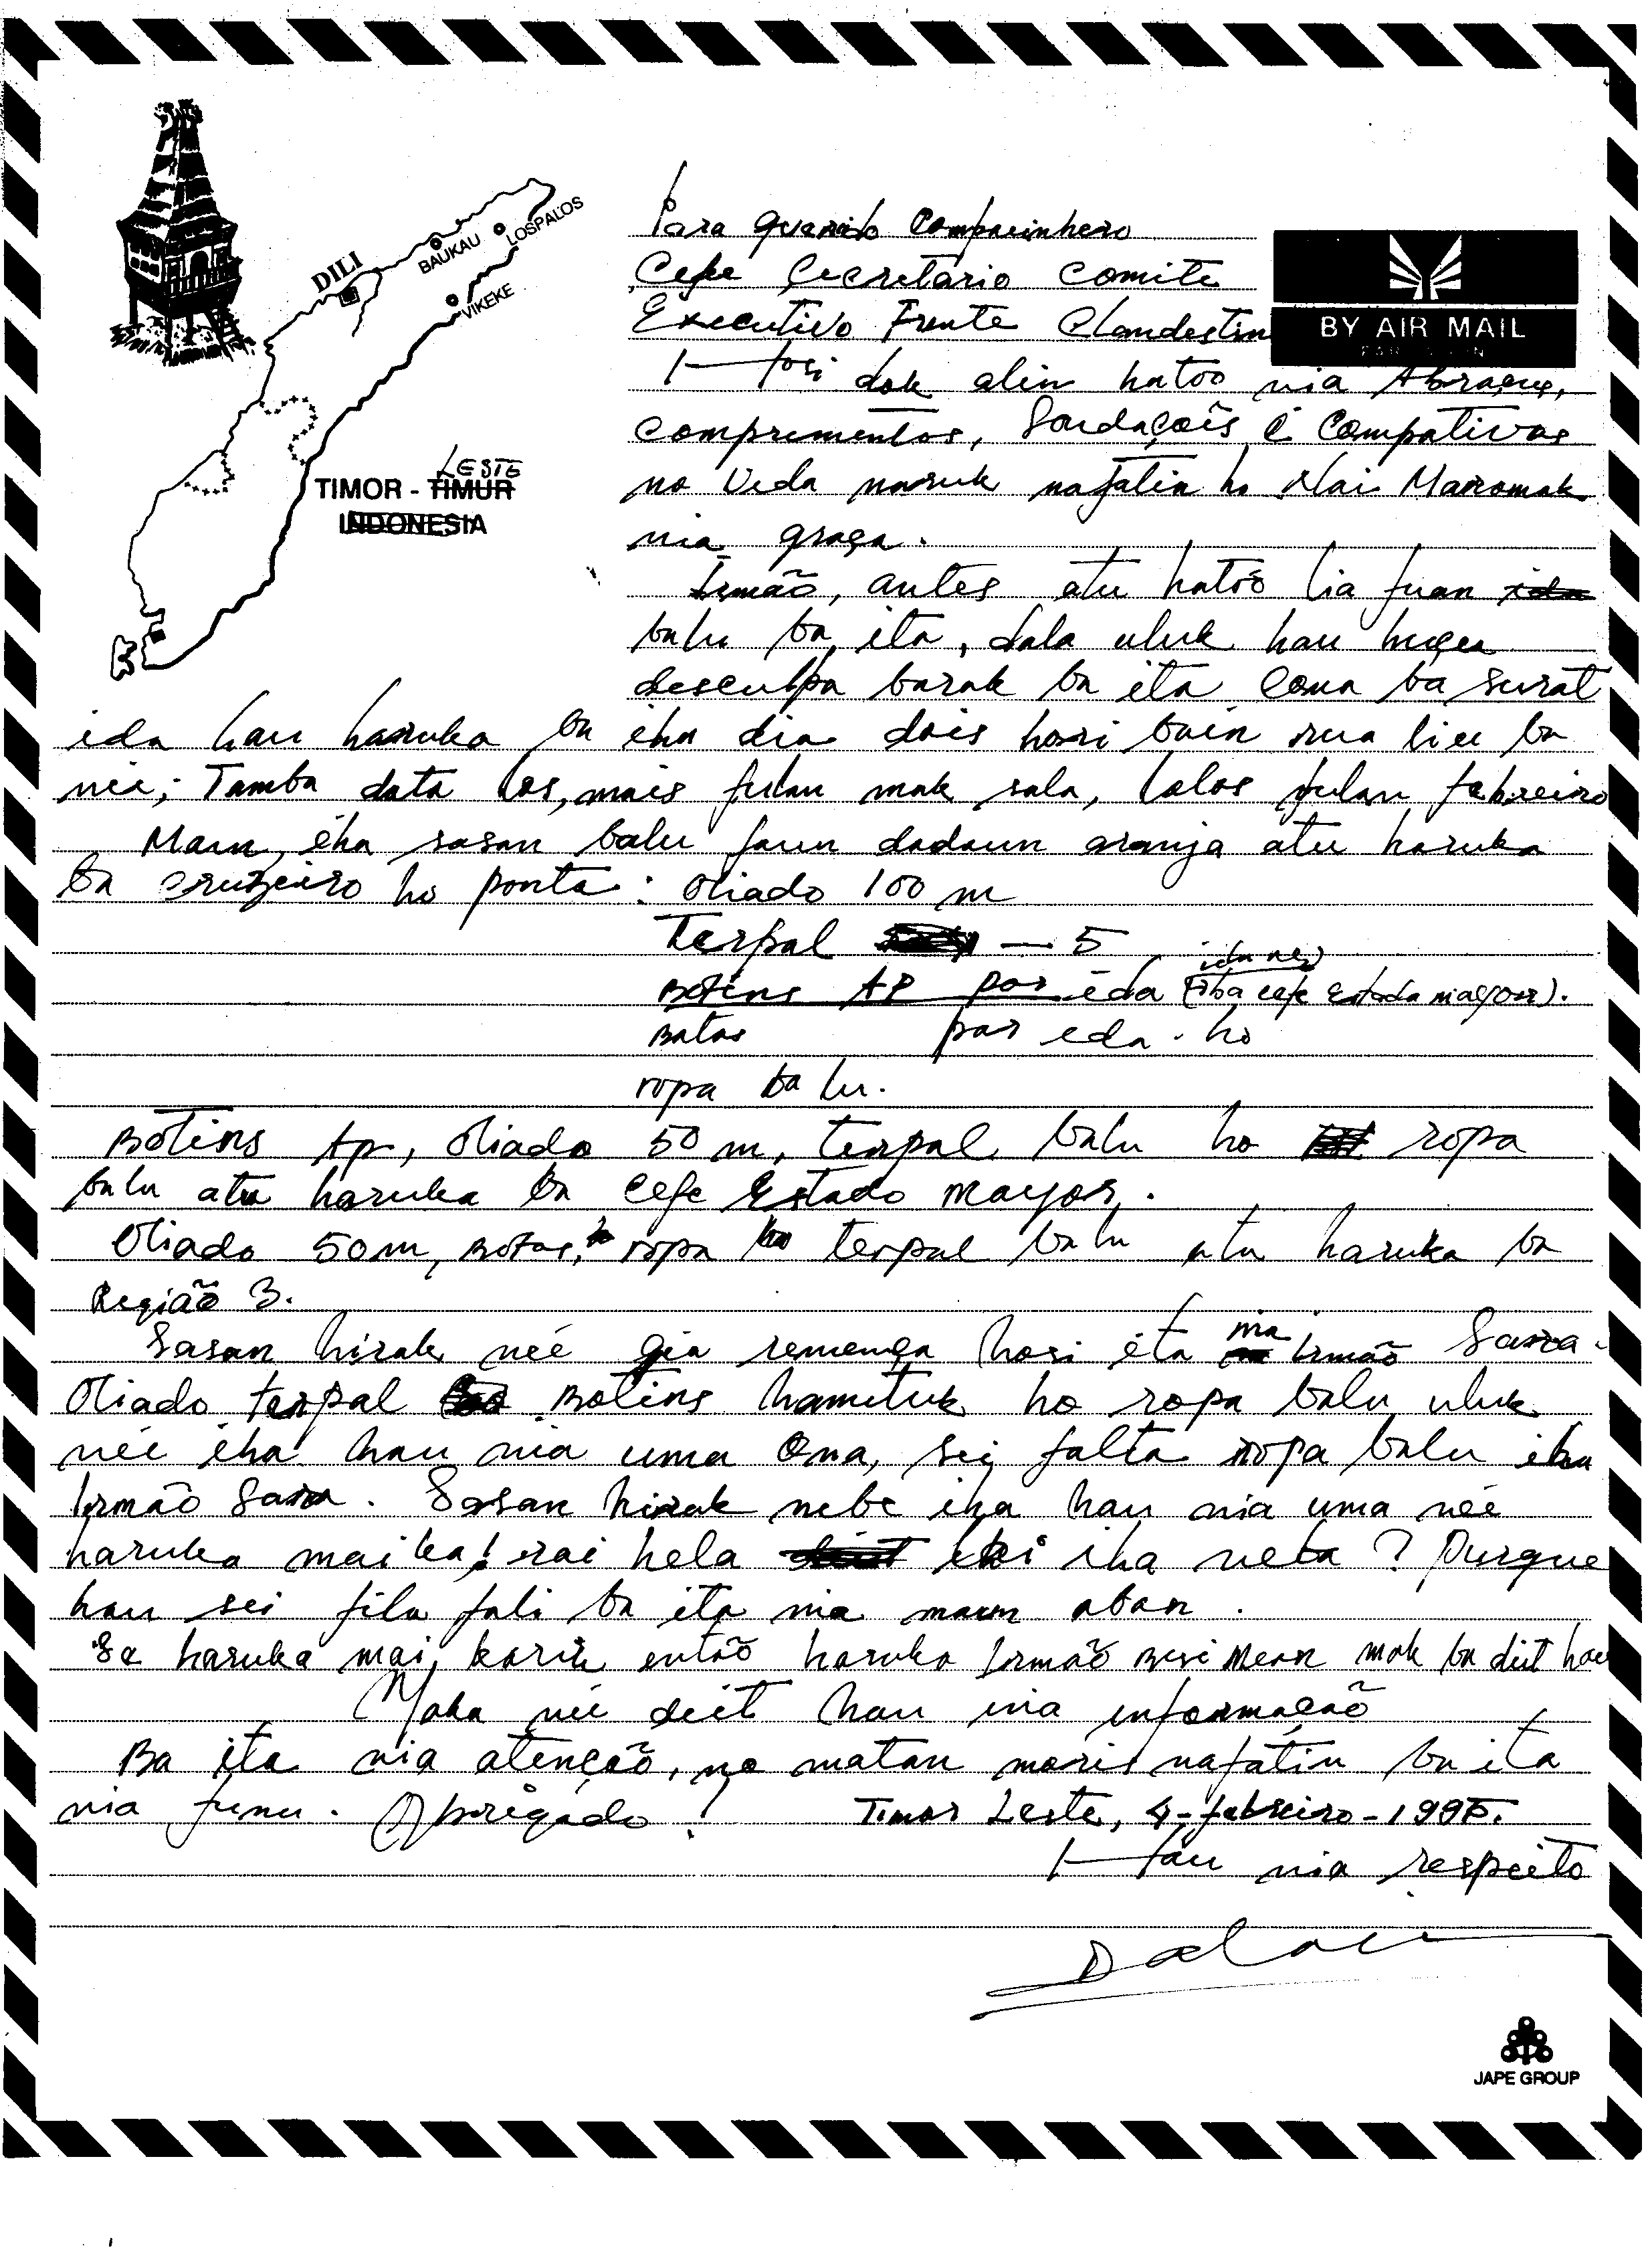 DILI
BAUKAU
LOSPALOS
VIKEKE
LESTE
TIMOR - TIMUR
INDONESIA
BY AIR MAIL
Para querido Companinhero
Cefe Secretario Comite
Executivo Frente Clandestin
Hosi dok alin hatoo nia Abraços,
Comprementos, Saudaçois é Compativas
no Veda naruk nafatin ho Nai Maromak
nia graça.
Irmão, antes atu hatóo lia fuan ida
balu ba ita, dala uluk hau huçu
desculpa barak ba ita Cona ba surat
ida hau haruka ba iha dia dois hori bain rua liu ba
neé; Tamba data los, mais fulan mak sala, lolos fulan febreiro
Maun, iha sasan balu faun dadaun aranja atu haruka
ba cruzeiro ho ponta: Oliado 100 m
Terpal — 5
ida neé
Botins AP par éda (iba cefe Estado mayor).
Botas par eda. ho
ropa balu.
Botins Ap, Oliado 50 m, terpal balu ho ropa
balu atu haruka ba Cefe Estado mayor.
Oliado 50m, Botas, ropa ho terpal balu atu haruka ba
Região 3.
Sasan hirak neé gia remença hosi ita nia Irmão Sara.
Oliado terpal Botins hamutuk ho ropa balu uluk
neé iha hau nia uma Ona, sei falta ropa balu iha
Irmão Sara. Sasan hirak nebe iha hau nia uma neé
haruka mai ka! rai hela iha neba? Purque
hau sei fila fali ba ita nia maun aban.
Se haruka mai karik então haruka Irmão Besi Mean mak ba diit hau
Maka neé deit hau nia informação
Ba ita nia atenção, no matan moris nafatin ba ita
nia funu. Obrigado! Timor Leste, 4-febreiro-1995.
Hau nia respeito
JAPE GROUP